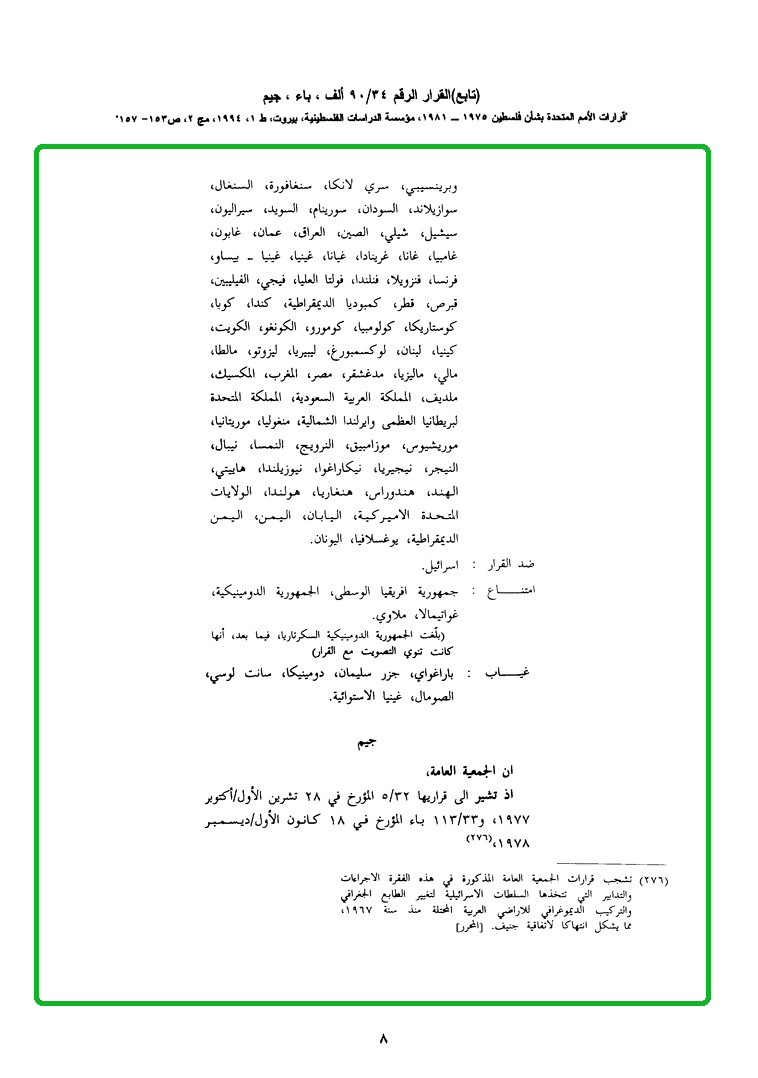 (تابع)القرار الرقم ٩٠/٣٤ ألف ، باء ، جيم
"قرارات الأمم المتحدة بشأن فلسطين ١٩٧٥ ــ ١٩٨١، مؤسسة الدراسات الفلسطينية، بيروت، ط ١، ١٩٩٤، مج ٢، ص١٥٣- ١٥٧"
وبرينسيبي، سري لانكا، سنغافورة، السنغال،
سوازيلاند، السودان، سورينام، السويد، سيراليون،
سيشيل، شيلي، الصين، العراق، عمان، غابون،
غامبيا، غانا، غرينادا، غيانا، غينيا، غينيا ــ بيساو،
فرنسا، فنزويلا، فنلندا، فولتا العليا، فيجي، الفيليبين،
قبرص، قطر، كمبوديا الديمقراطية، كندا، كوبا،
كوستاريكا، كولومبيا، كومورو، الكونغو، الكويت،
كينيا، لبنان، لوكسمبورغ، ليبيريا، ليزوتو، مالطا،
مالي، ماليزيا، مدغشقر، مصر، المغرب، المكسيك،
ملديف، المملكة العربية السعودية، المملكة المتحدة
لبريطانيا العظمى وايرلندا الشمالية، منغوليا، موريتانيا،
موريشيوس، موزامبيق، النرويج، النمسا، نيبال،
النيجر، نيجيريا، نيكاراغوا، نيوزيلندا، هاييتي،
الهند، هندوراس، هنغاريا، هولندا، الولايات
المتحدة الاميركية، اليابان، اليمن، اليمن
الديمقراطية، يوغسلافيا، اليونان.
ضد القرار : اسرائيل.
امتنـــــاع : جمهورية افريقيا الوسطى، الجمهورية الدومينيكية،
غواتيمالا، ملاوي.
(بلّغت الجمهورية الدومينيكية السكرتاريا، فيما بعد، أنها
كانت تنوي التصويت مع القرار)
غيـــــاب : باراغواي، جزر سليمان، دومينيكا، سانت لوسي،
الصومال، غينيا الاستوائية.
جيم
ان الجمعية العامة،
اذ تشير الى قراريها ٥/٣٢ المؤرخ في ٢٨ تشرين الأول/أكتوبر
١٩٧٧، و١١٣/٣٣ باء المؤرخ في ١٨ كانون الأول/ديسمبر
١٩٧٨،(٢٧٦)
(٢٧٦) تشجب قرارات الجمعية العامة المذكورة في هذه الفقرة الاجراءات
والتدابير التي تتخذها السلطات الاسرائيلية لتغيير الطابع الجغرافي
والتركيب الديموغرافي للاراضي العربية المحتلة منذ سنة ١٩٦٧،
مما يشكل انتهاكا لاتفاقية جنيف. [المحرر]
٨